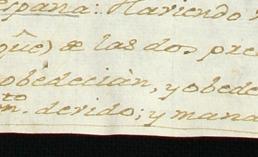 espana: Haviendo
que) de las dos pre
obedecian, y obede
to. devido; y mana